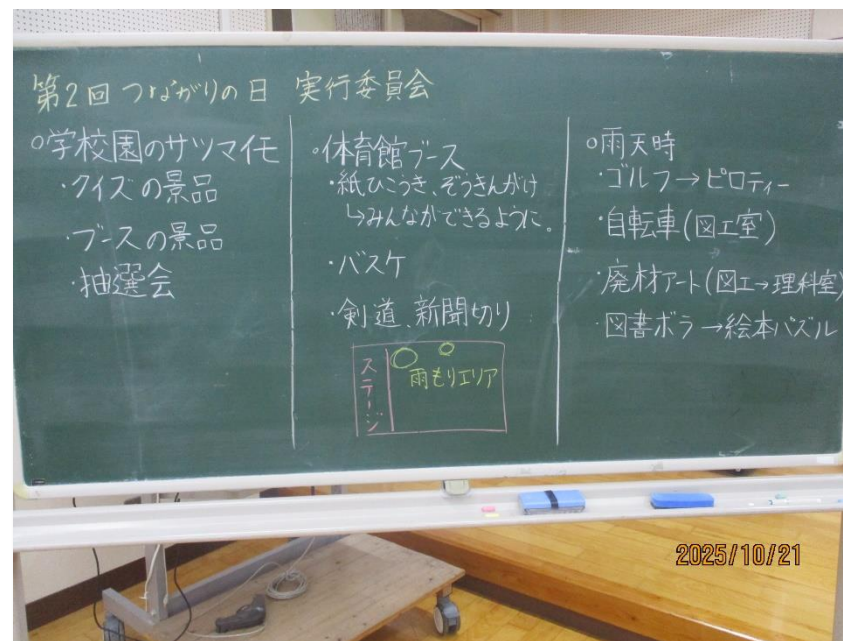 第2回 つながりの日 実行委員会
○学校園のサツマイモ
・クイズの景品
・ブースの景品
・抽選会
○体育館ブース
・紙ひこうき、ぞうきんがけ
↳みんなができるように。
・バスケ
・剣道、新聞切り
ステージ
雨もりエリア
○雨天時
・ゴルフ→ピロティー
・自転車(図工室)
・廃材アート(図工→理科室)
・図書ボラ→絵本パズル
2025/10/21